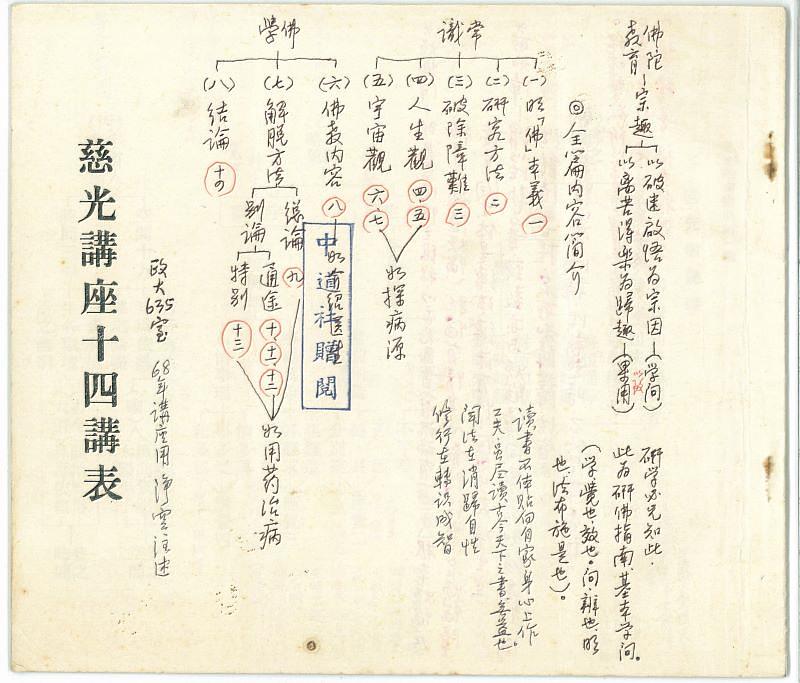 佛陀教育—宗趣
以破迷啟悟為宗因—(学问)
以离苦得樂為歸趣—(果用)
以致
研学必先知此.
此为研佛指南.基本学问。
(学覺也,效也。问,辨也,明
也,法布施是也)。
◎全篇内容简介
常識
(一)明「佛」本義 一
(二)研究方法 二
(三)破除障難 三
(四)人生觀 四、五
(五)宇宙觀 六、七
如探病源
佛學
(六)佛教内容 八
(七)解脱方法
總論 九
别論
通途 十、十一、十二
特别 十三
(八)结論 十四
如用药治病
中道社贈閱
读書不体贴向自家身心上作
工夫,虽尽读古今天下之書無益也。
聞法在消歸自性
修行在轉识成智
慈光講座十四講表
政大635室
68年講座用 淨空注述